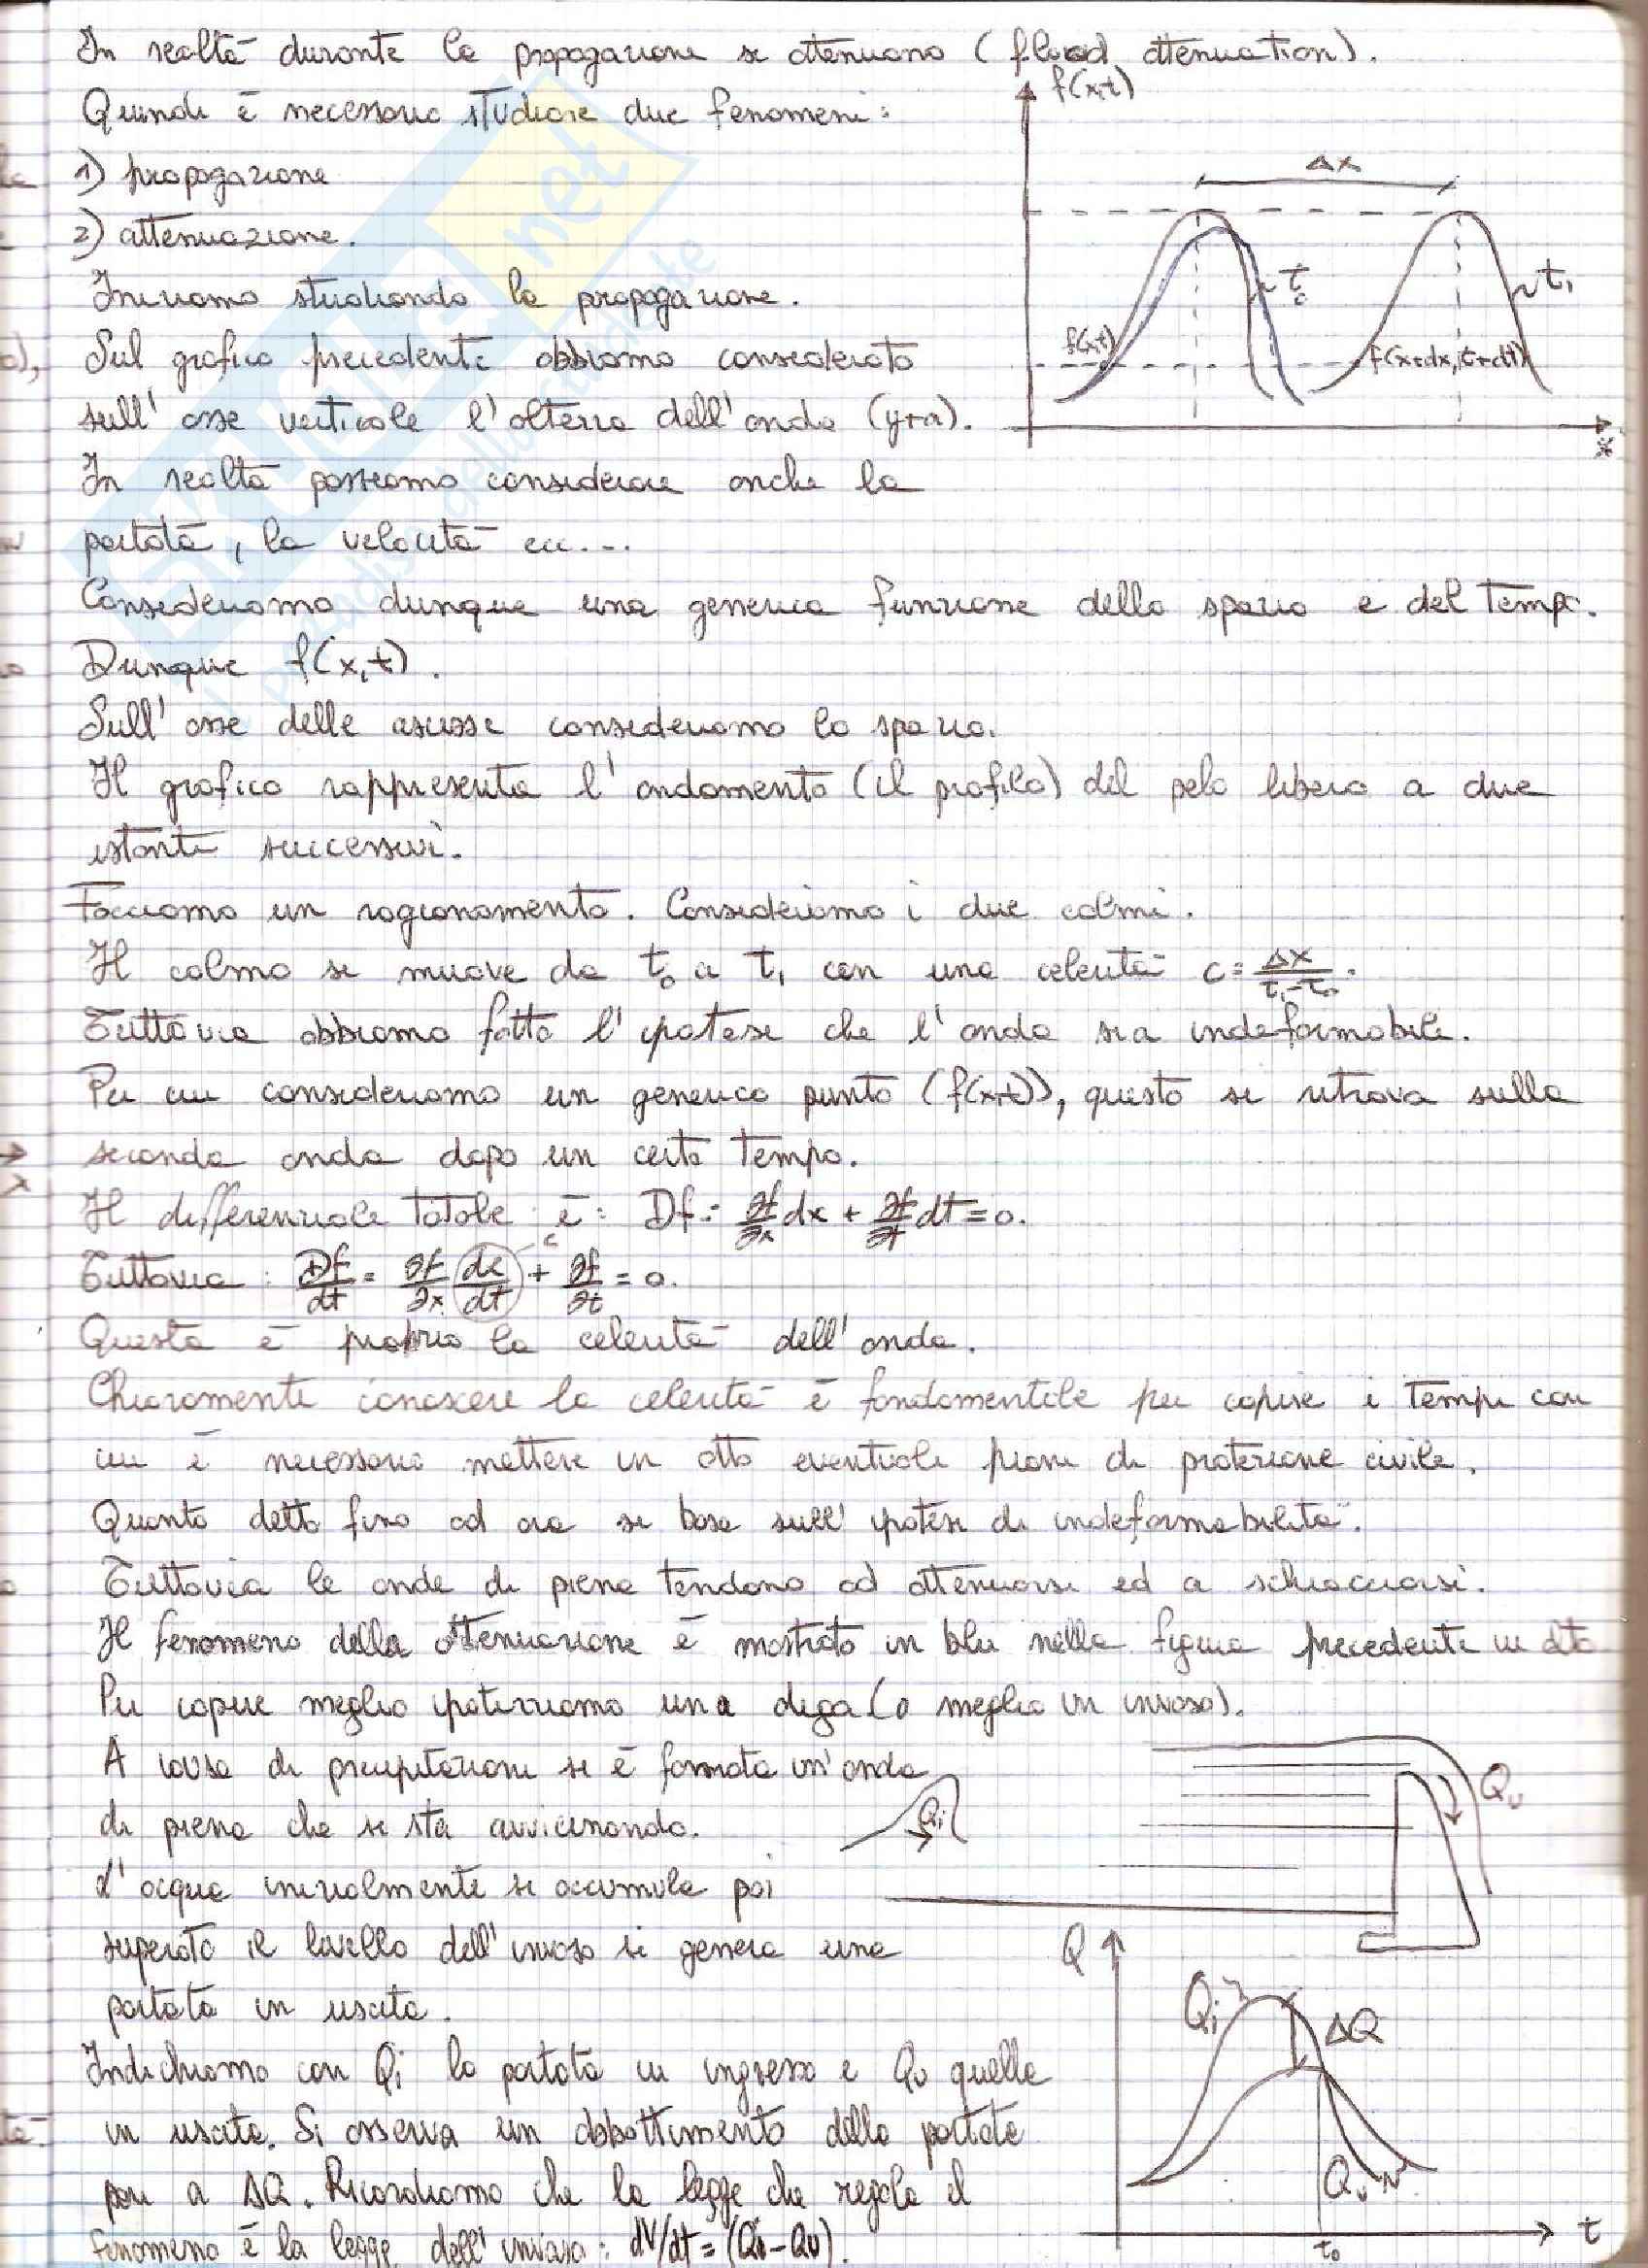 In realtà durante la propagazione si attenuano (flood attenuation).
Quindi è necessario studiare due fenomeni:
1) propagazione
2) attenuazione.
Iniziamo studiando la propagazione.
Sul grafico precedente abbiamo considerato
sull' asse verticale l'altezza dell'onda (y+a).
In realtà possiamo considerare anche la
portata, la velocità ecc...
f(x,t)
Δx
t₀
t₁
f(x,t)
f(x+dx, t+dt)
x
Consideriamo dunque una generica funzione dello spazio e del tempo.
Dunque f(x,t).
Sull' asse delle ascisse consideriamo lo spazio.
Il grafico rappresenta l' andamento (il profilo) del pelo libero a due
istanti successivi.
Facciamo un ragionamento. Consideriamo i due colmi.
Il colmo si muove da t₀ a t₁ con una celerità c = Δx/(t₁-t₀).
Tuttavia abbiamo fatto l' ipotesi che l' onda sia indeformabile.
Per cui consideriamo un generico punto (f(x,t)), questo si ritrova sulla
seconda onda dopo un certo tempo.
Il differenziale totale è: Df = ∂f/∂x dx + ∂f/∂t dt = 0.
Tuttavia: Df/dt = ∂f/∂x dx/dt + ∂f/∂t = 0.
c
Questa è proprio la celerità dell'onda.
Chiaramente conoscere la celerità è fondamentale per capire i tempi con
cui è necessario mettere in atto eventuali piani di protezione civile.
Quanto detto fino ad ora si basa sull' ipotesi di indeformabilità.
Tuttavia le onde di piena tendono ad attenuarsi ed a schiacciarsi.
Il fenomeno della attenuazione è mostrato in blu nella figura precedente in alto
Per capire meglio ipotizziamo una diga (o meglio un invaso).
A causa di precipitazioni si è formata un'onda
di piena che si sta avvicinando.
L' acqua inizialmente si accumula poi
superato il livello dell' invaso si genera una
portata in uscita.
Qi
Qu
Indichiamo con Qi la portata in ingresso e Qu quella
in uscita. Si osserva un abbattimento della portata
pari a ΔQ. Ricordiamo che la legge che regola il
fenomeno è la legge dell' invaso: dV/dt = (Qi - Qu).
Q
Qi
ΔQ
Qu
t₀
t
SKUOLA.net